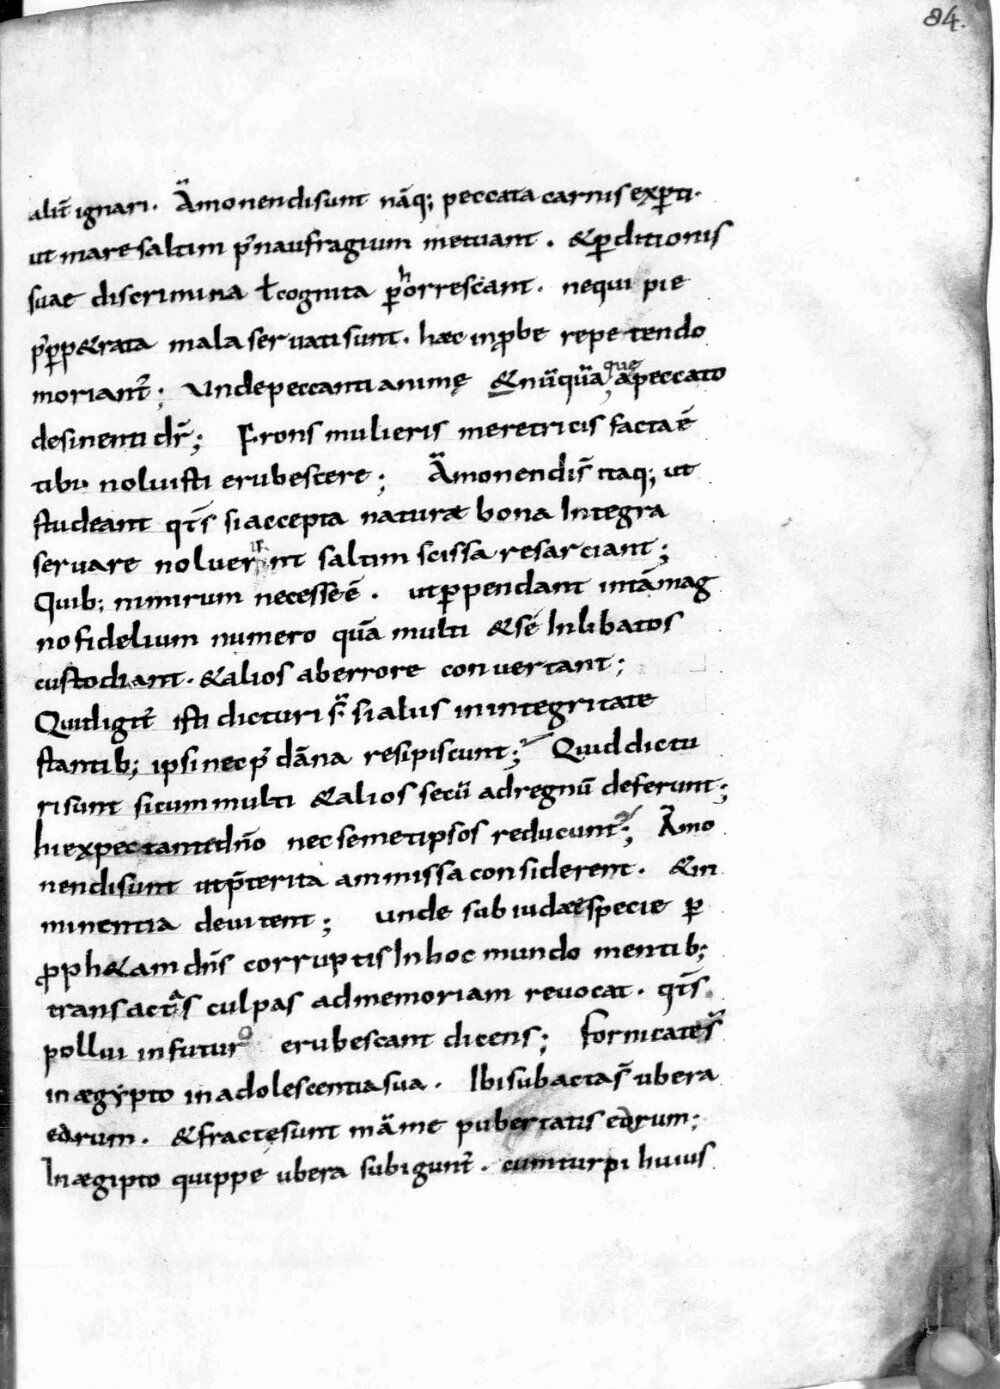 84.
alit̄ ignari. Āmonendi sunt nāq; peccata carnis exꝑti.
ut mare saltim p̄ naufragium metuant. & ꝑditionis
suae discrimina ł cognita ꝑhorrescant. ne qui pie
p̄ ꝑp&rata mala servati sunt. haec inꝓbe repetendo
moriant̄; Unde peccanti animę & nūquā que a peccato
desinenti dr̄; Frons mulieris meretricis facta ē
tibi noluisti erubescere; Āmonendi s̄ itaq; ut
studeant qt̄s si accepta naturae bona Integra
servare noluerint saltim scissa resarciant;
Quib; nimirum necesse ē. ut ꝑpendant in tā mag
no fidelium numero quā multi & se Inlibatos
custodiant. & alios ab errore convertant;
Quid igit̄ isti dicturi s̄ si aliis in integritate
stantib; ipsi nec p̄ dāna resipiscunt; Quid dictu
ri sunt si cum multi & alios secū ad regnū deferunt;
hi expectante dn̄o nec semetipsos reducunt; Āmo
nendi sunt ut p̄terita ammissa considerent. & in
minentia devitent; Unde sub iudaeae specie ꝑ
ꝓph&am dn̄s corruptis In hoc mundo mentib;
transactas culpas ad memoriam revocat. qt̄s
pollui in futuro erubescant dicens; fornicatę s̄
in aegypto in adolescentia sua. Ibi subacta s̄ ubera
eorum. & fractę sunt māme pubertatis eorum;
In aegipto quippe ubera subigunt̄. cum turpi huius